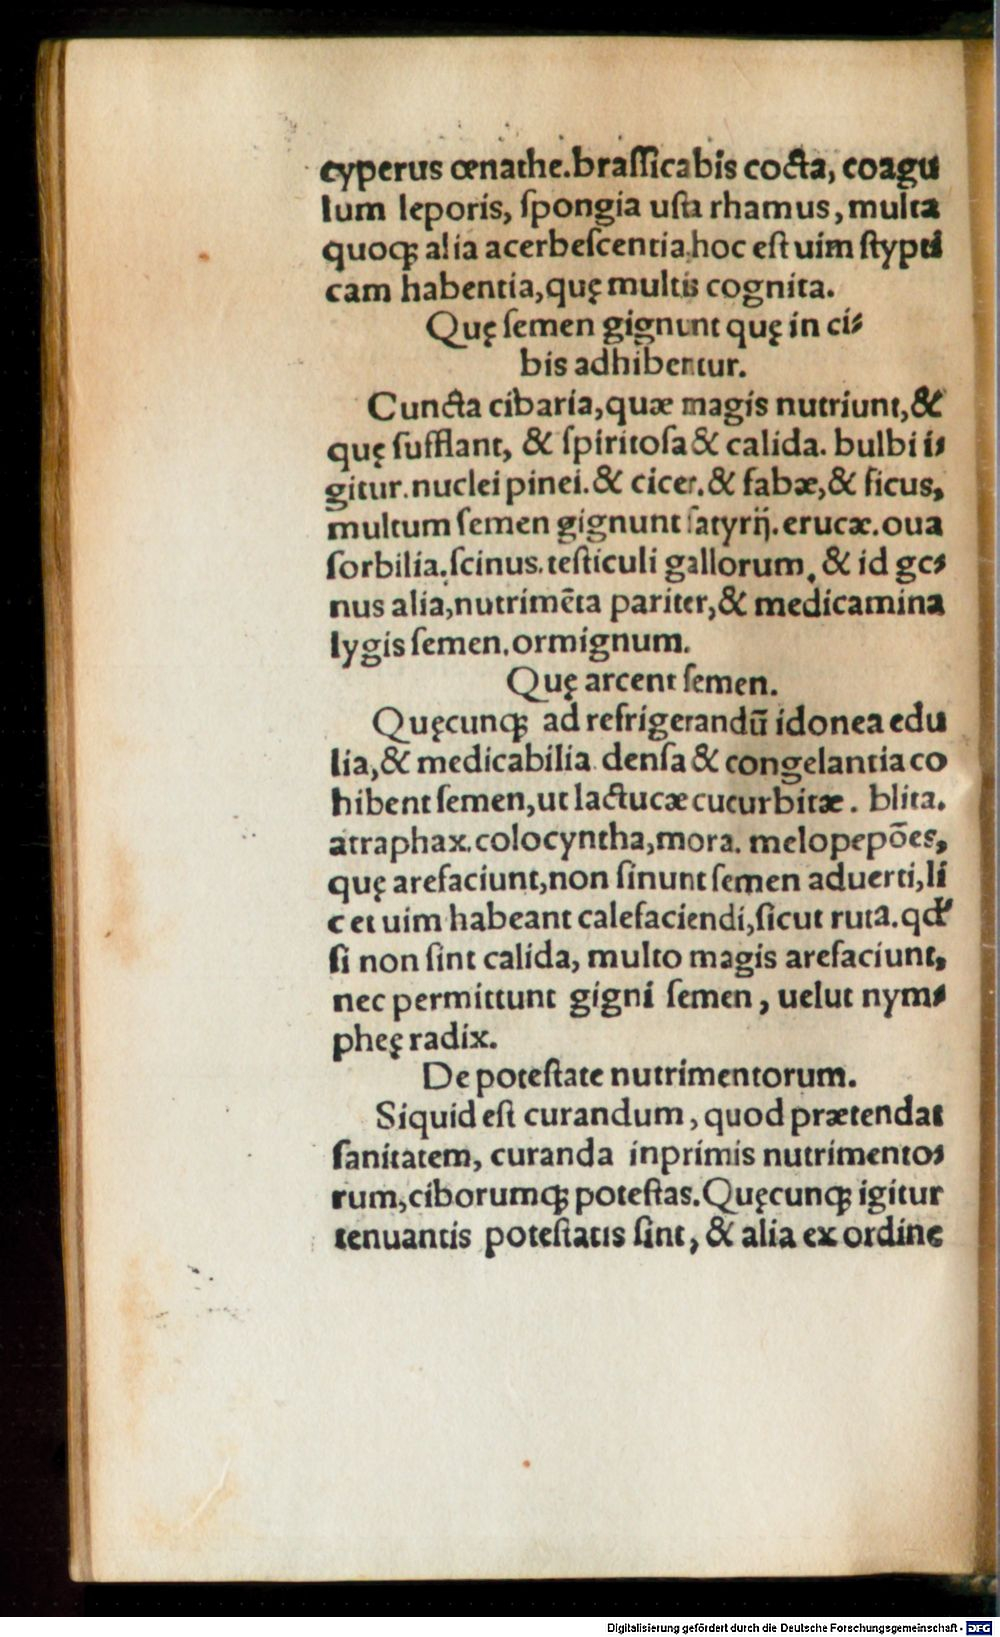 cyperus œnathe.braſſica bis cocta, coagu
lum leporis, ſpongia uſta rhamus, multa
quoqꝫ alia acerbeſcentia.hoc eſt uim ſtypti
cam habentia,quę multis cognita.
Quę ſemen gignunt quę in ci⸗
bis adhibentur.
Cuncta cibaria,quæ magis nutriunt,&
quę ſufflant, & ſpiritoſa & calida. bulbi i⸗
gitur.nuclei pinei.& cicer.& fabæ,& ficus,
multum ſemen gignunt ſatyrij.erucæ.oua
ſorbilia.ſcinus.teſticuli gallorum. & id ge⸗
nus alia,nutrimēta pariter,& medicamina
lygis ſemen.ormignum.
Quę arcent ſemen.
Quęcunqꝫ ad refrigerandū idonea edu
lia,& medicabilia denſa & congelantia co
hibent ſemen,ut lactucæ cucurbitæ. blita.
atraphax.colocyntha,mora. melopepōes,
quę arefaciunt,non ſinunt ſemen aduerti,li
cet uim habeant calefaciendi,ſicut ruta.qđ
ſi non ſint calida, multo magis arefaciunt,
nec permittunt gigni ſemen, uelut nym⸗
pheę radix.
De poteſtate nutrimentorum.
Siquid eſt curandum, quod prætendat
ſanitatem, curanda inprimis nutrimento⸗
rum,ciborumqꝫ poteſtas.Quęcunqꝫ igitur
tenuantis poteſtatis ſint, & alia ex ordine
Digitalisierung gefördert durch die Deutsche Forschungsgemeinschaft - DFG